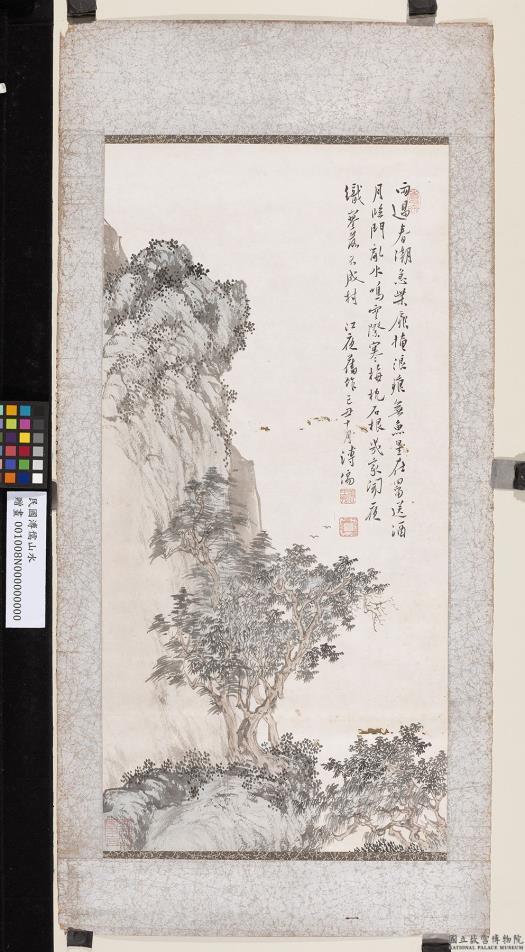 雨過春潮急柴扉掩浪痕無魚星在罶送酒
月臨門亂水鳴雲際寒梅抱石根幾家聞夜
織寥落不成村 江夜舊作己丑十月溥儒
民國溥儒山水
贈畫 001008N000000000
國立故宮博物院
NATIONAL PALACE MUSEUM